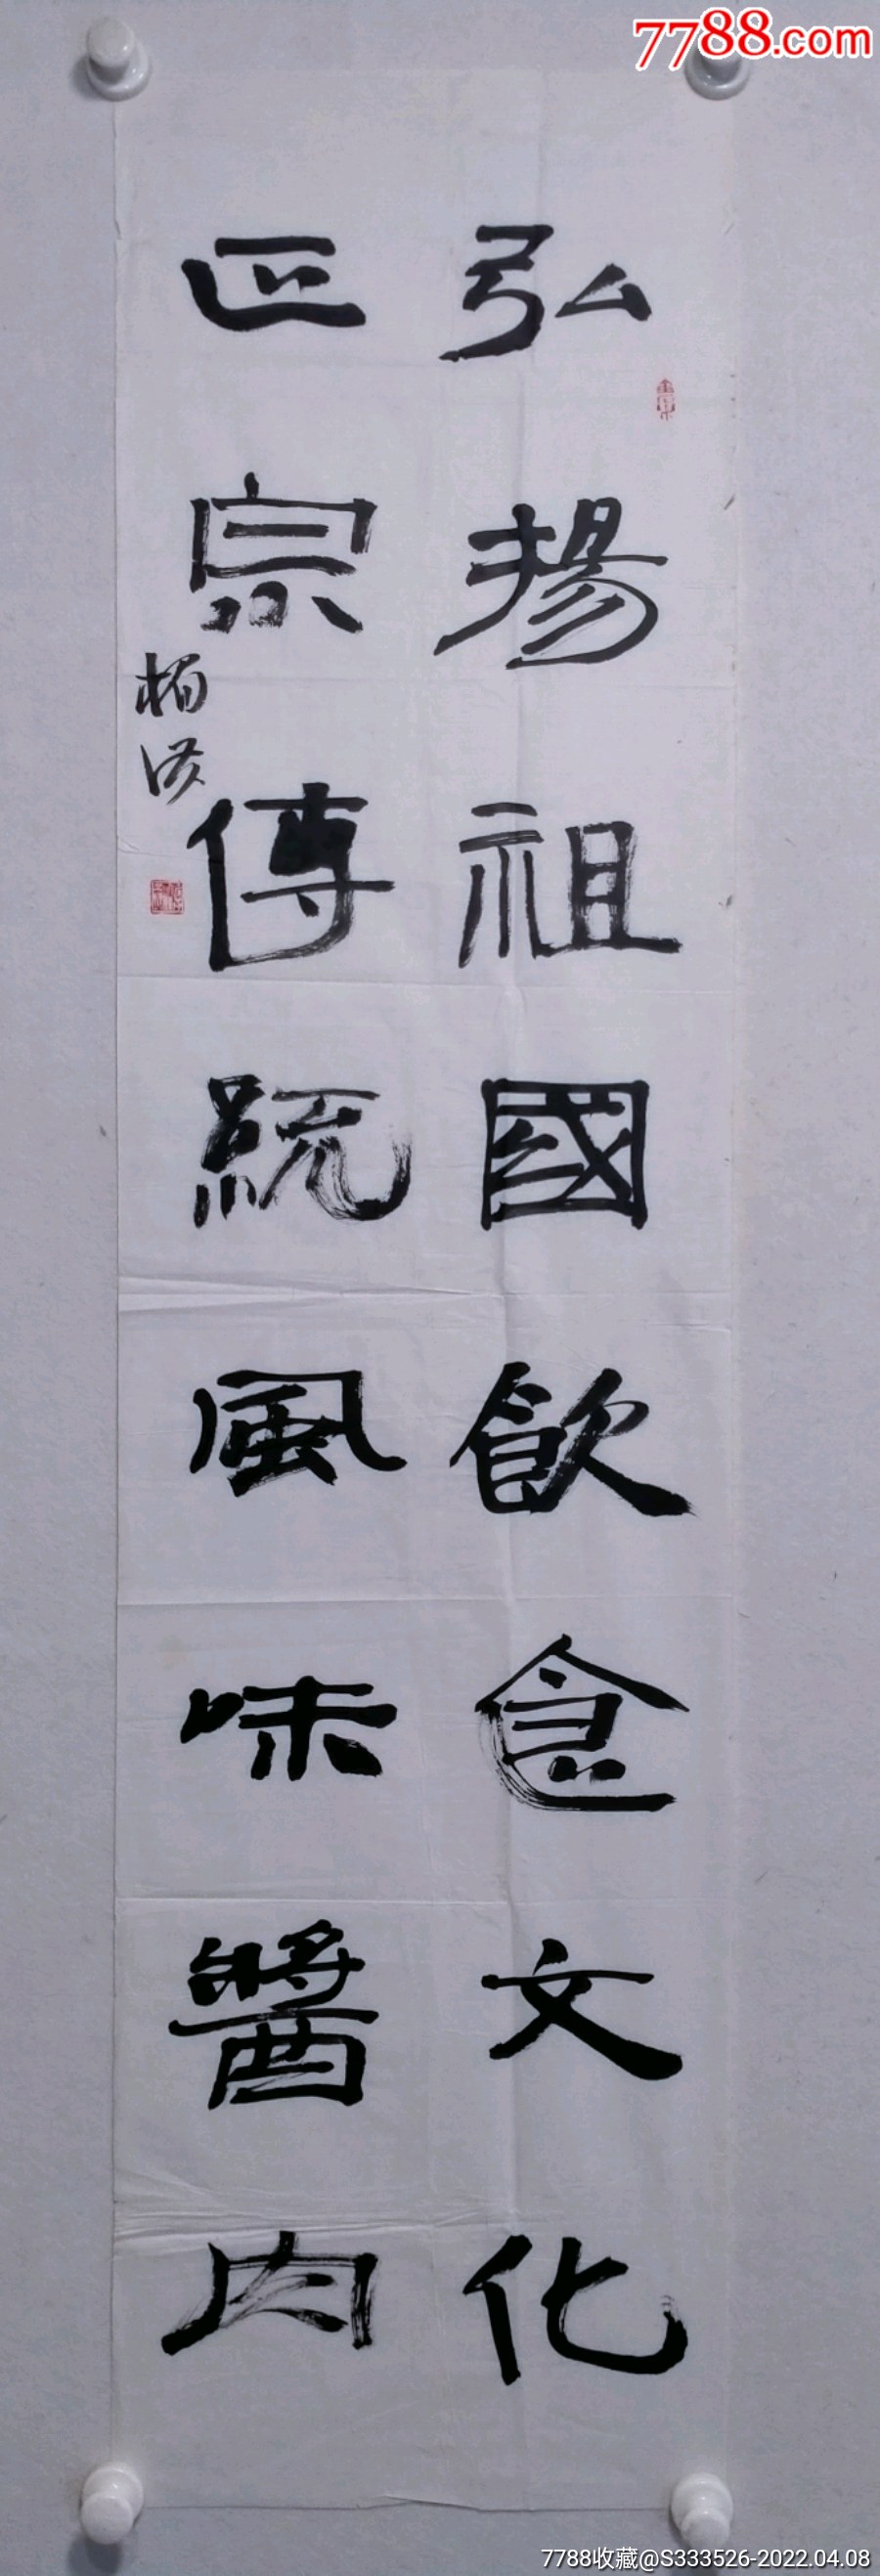 7788.com
弘揚祖國飲食文化
正宗傳統風味醬肉
7788收藏@S333526-2022.04.08